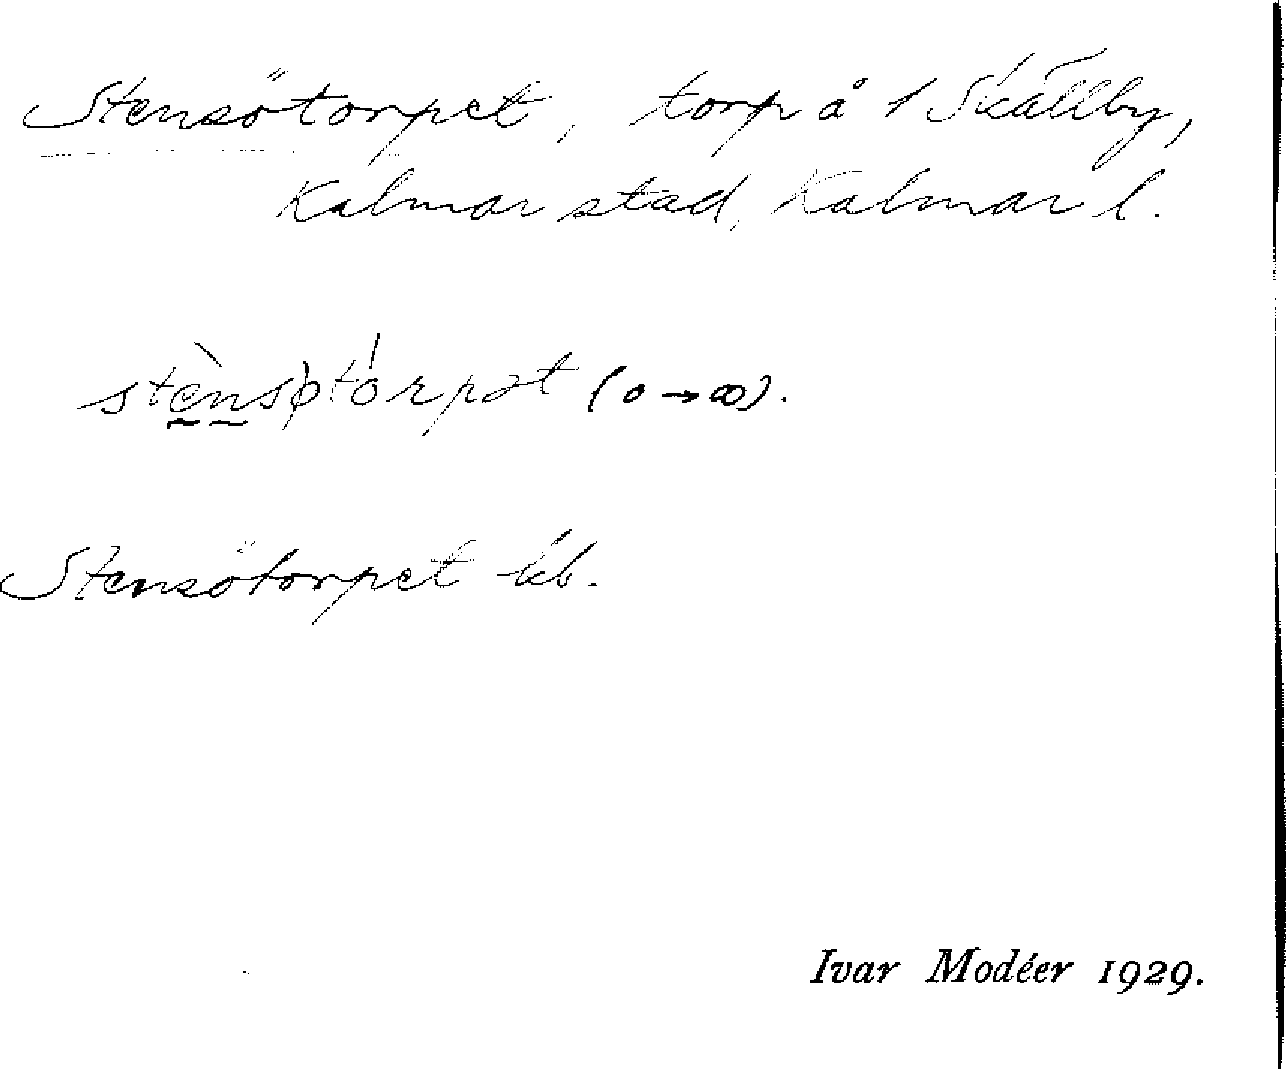 Stensötorpet, torp å 1 Skällby,
Kalmar stad, Kalmar l.
stènsøtórpət (o→ꝏ).
Stensötorpet kb.
Ivar Modéer 1929.